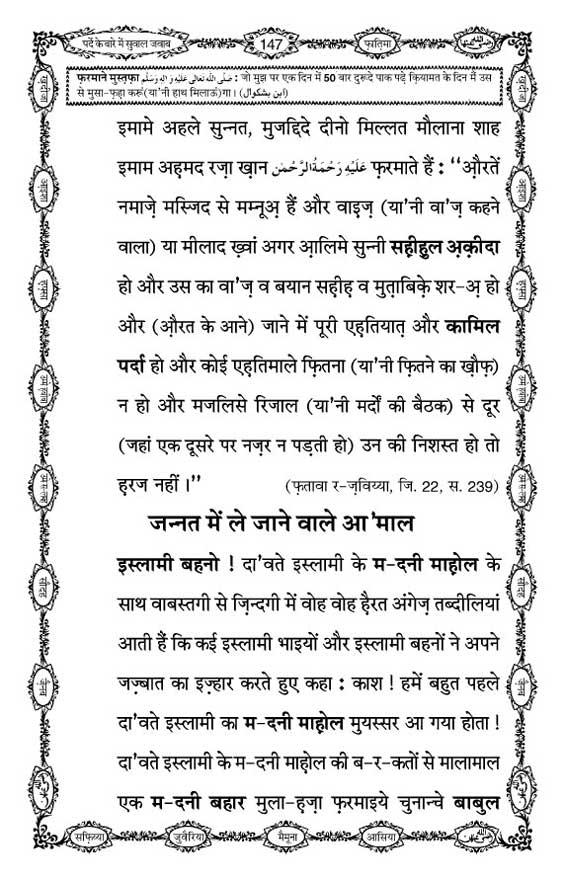 पर्दे के बारे में सुवाल जवाब
147
फ़ातिमा
फ़रमाने मुस्त़फ़ा صَلَّى اللّٰهُ تَعَالٰى عَلَيْهِ وَاٰلِهٖ وَسَلَّم : जो मुझ पर एक दिन में 50 बार दुरूदे पाक पढ़े क़ियामत के दिन मैं उस
से मुसा-फ़हा़ करूं(या'नी हाथ मिलाऊं)गा। (ابن بشكوال)
इमामे अहले सुन्नत, मुजद्दिदे दीनो मिल्लत मौलाना शाह
इमाम अह़मद रज़ा ख़ान عَلَيْهِ رَحْمَةُ الرَّحْمٰن फ़रमाते हैं : ‘‘औ़रतें
नमाज़े मस्जिद से मम्नूअ़ हैं और वाइज़ (या'नी वा'ज़ कहने
वाला) या मीलाद ख़्वां अगर आ़लिमे सुन्नी सह़ीह़ुल अ़क़ीदा
हो और उस का वा'ज़ व बयान सह़ीह़ व मुत़ाबिक़े शर-अ़ हो
और (औ़रत के आने) जाने में पूरी एह़तियात़ और कामिल
पर्दा हो और कोई एह़तिमाले फ़ितना (या'नी फ़ितने का ख़ौफ़)
न हो और मजलिसे रिजाल (या'नी मर्दों की बैठक) से दूर
(जहां एक दूसरे पर नज़र न पड़ती हो) उन की निशस्त हो तो
ह़रज नहीं।’’
(फ़तावा र-ज़विय्या, जि. 22, स. 239)
जन्नत में ले जाने वाले आ'माल
इस्लामी बहनो ! दा'वते इस्लामी के म-दनी माह़ोल के
साथ वाबस्तगी से ज़िन्दगी में वोह वोह ह़ैरत अंगेज़ तब्दीलियां
आती हैं कि कई इस्लामी भाइयों और इस्लामी बहनों ने अपने
जज़्बात का इज़्हार करते हुए कहा : काश ! हमें बहुत पहले
दा'वते इस्लामी का म-दनी माह़ोल मुयस्सर आ गया होता !
दा'वते इस्लामी के म-दनी माह़ोल की ब-र-कतों से मालामाल
एक म-दनी बहार मुला-ह़ज़ा फ़रमाइये चुनान्चे बाबुल
सफ़िय्या
जुवैरिया
मैमूना
आसिया